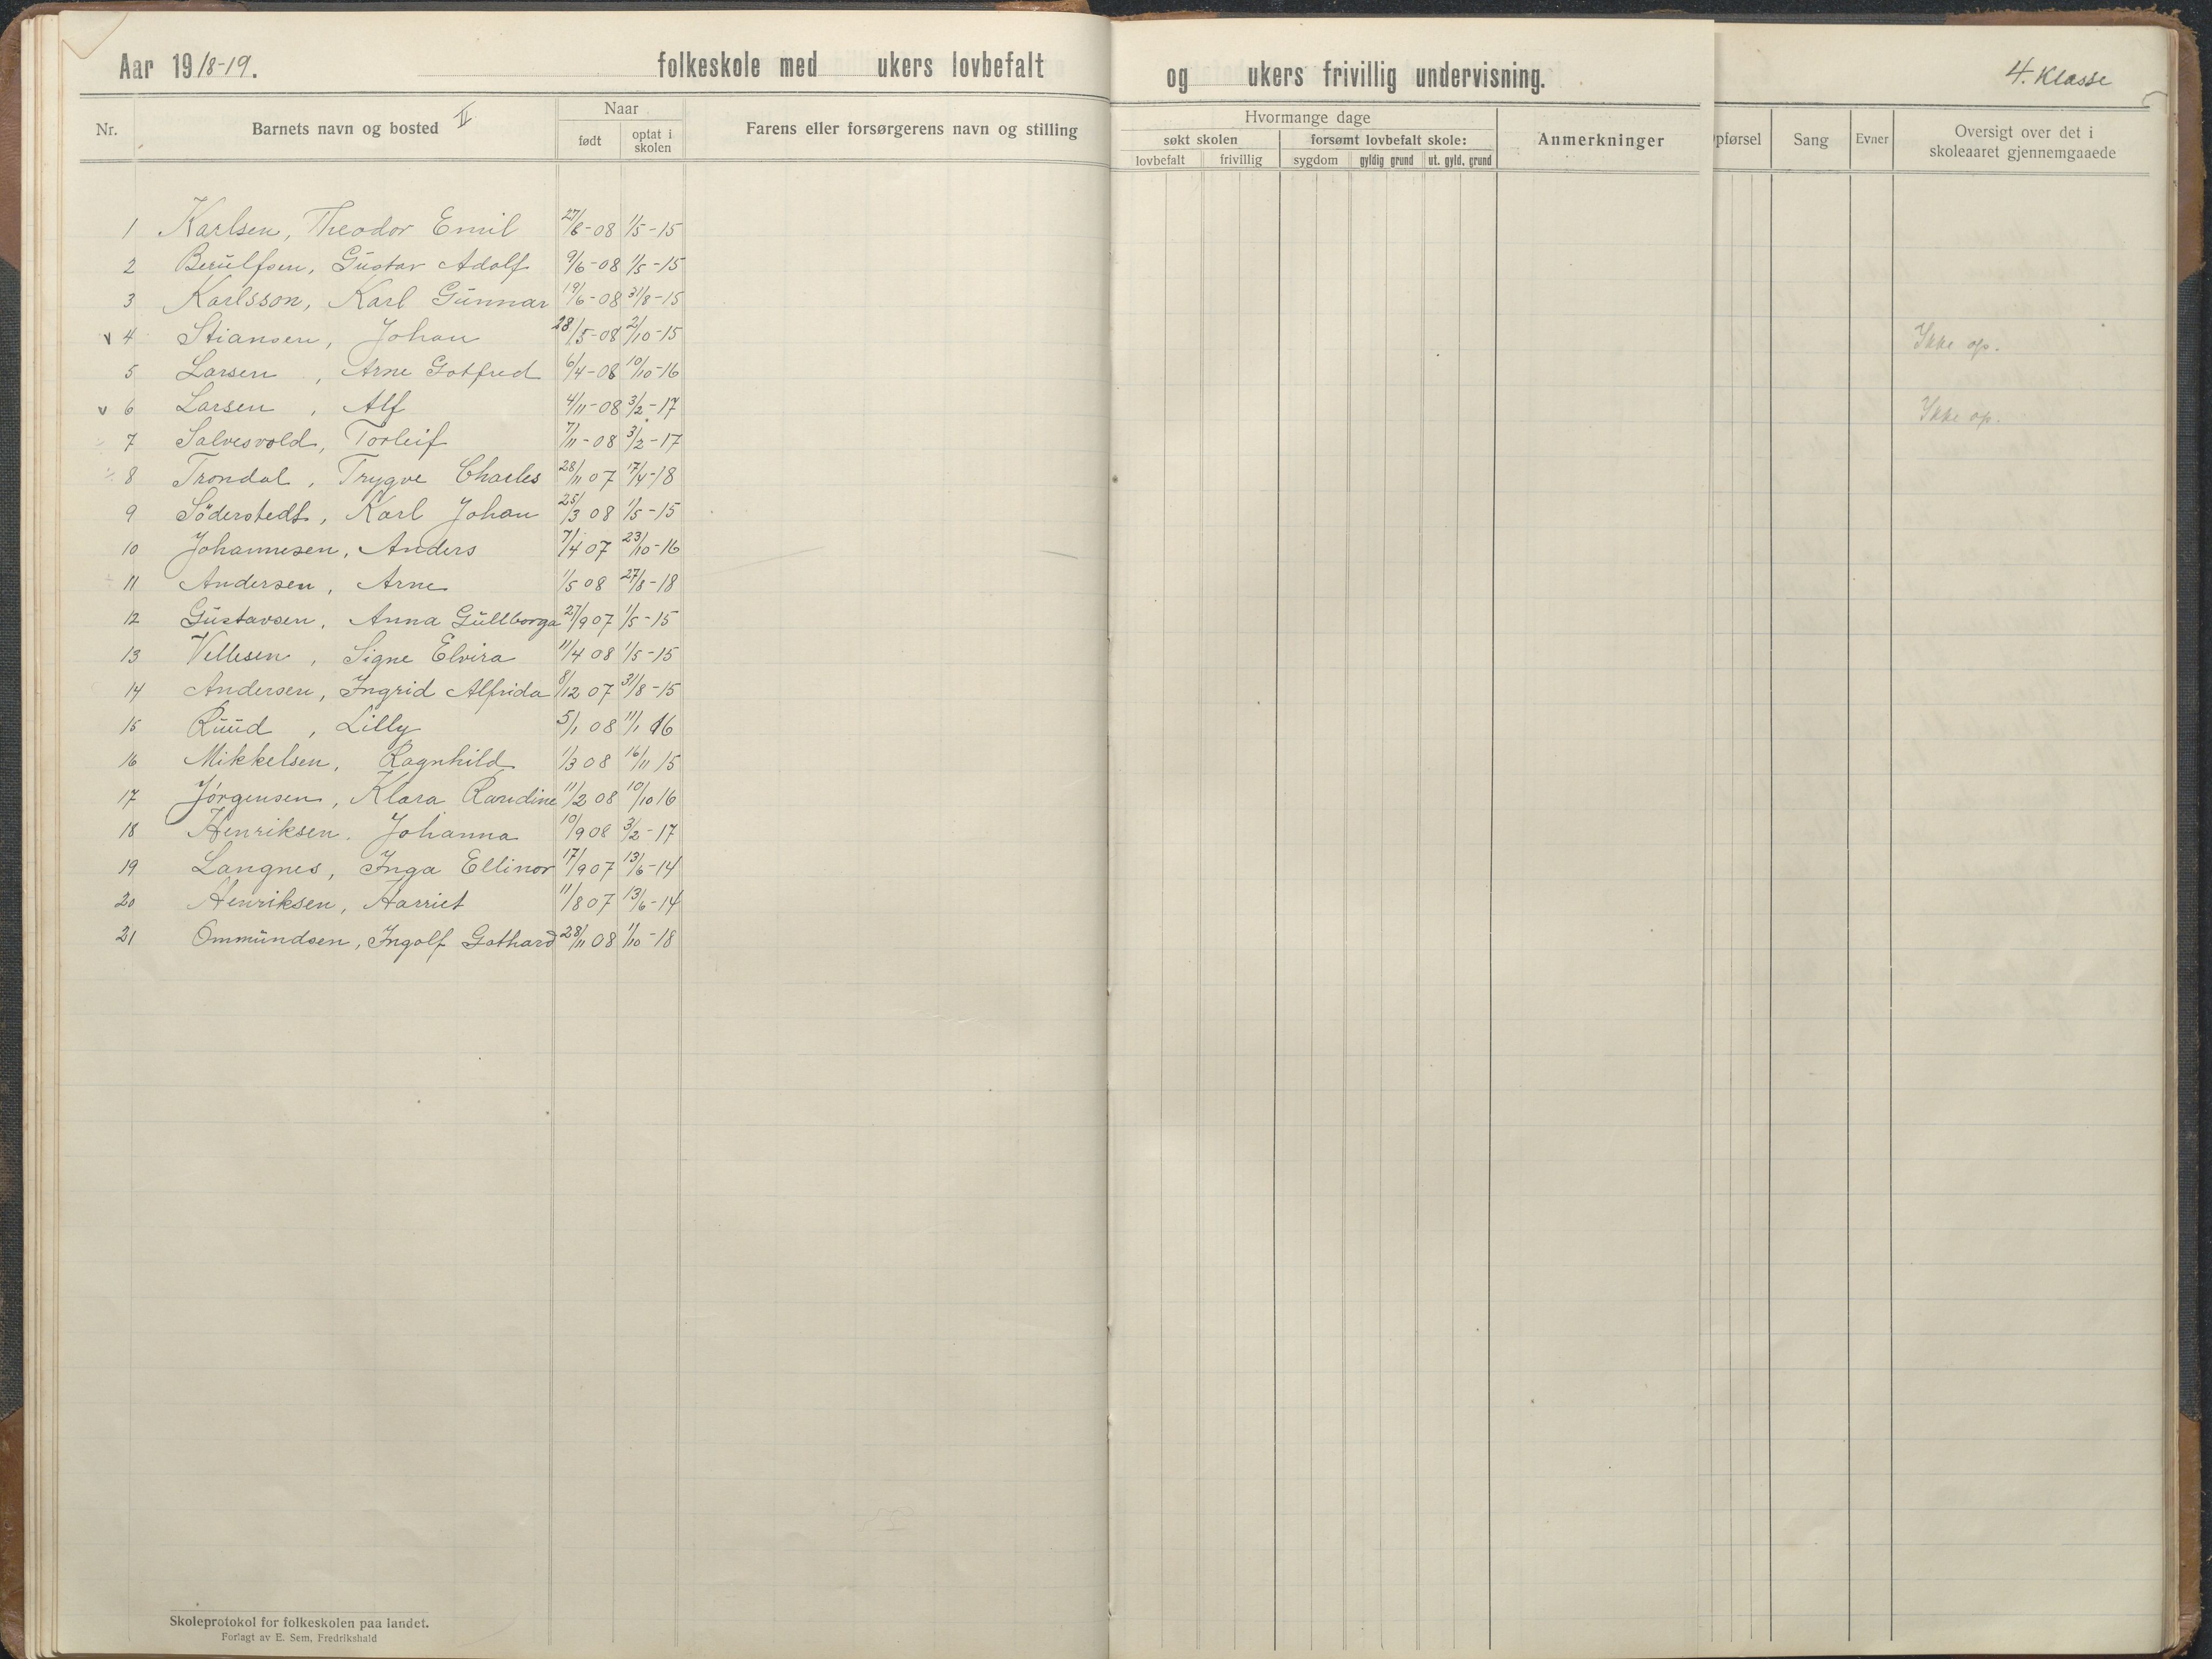 Aar 1918-19. folkeskole med ukers lovbefalt og ukers frivillig undervisning. 4. Klasse
Nr. Barnets navn og bosted II Naar født optat i skolen Farens eller forsørgerens navn og stilling
Hvormange dage
søkt skolen forsømt lovbefalt skole: Anmerkninger
lovbefalt frivillig sygdom gyldig grund ut. gyld. grund
pførsel Sang Evner Oversigt over det i skoleaaret gjennemgaaede
1 Karlsen, Theodor Emil 27/6-08 1/5-15
2 Berülfsen, Güstav Adolf 9/6-08 1/5-15
3 Karlsson, Karl Günnar 19/6-08 31/8-15
v 4 Stiansen, Johan 28/5-08 2/10-15 Ikke op.
5 Larsen, Arne Gotfred 6/4-08 10/10-16
v 6 Larsen, Alf 4/11-08 3/2-17 Ikke op.
7 Salvesvold, Torleif 7/11-08 3/2-17
8 Trondal, Trygve Charles 28/11 07 17/4-18
9 Söderstedt, Karl Johan 25/3 08 1/5-15
10 Johannesen, Anders 7/4 07 23/10-16
11 Andersen, Arne 1/5 08 27/8-18
12 Güstavsen, Anna Güllborga 27/9 07 1/5-15
13 Vellesen, Signe Elvira 11/4 08 1/5-15
14 Andersen, Ingrid Alfrida 8/12 07 31/8-15
15 Rüüd, Lilly 5/1 08 11/1 16
16 Mikkelsen, Ragnhild 1/3 08 16/11 15
17 Jörgensen, Klara Randine 11/2 08 10/10 16
18 Henriksen, Johanna 10/9 08 3/2-17
19 Langnes, Inga Ellinor 17/9 07 13/6-14
20 Henriksen, Harriet 11/8 07 13/6-14
21 Ommündsen, Ingolf Gothard 28/11 08 1/10-18
Skoleprotokol for folkeskolen paa landet.
Forlagt av E. Sem, Fredrikshald